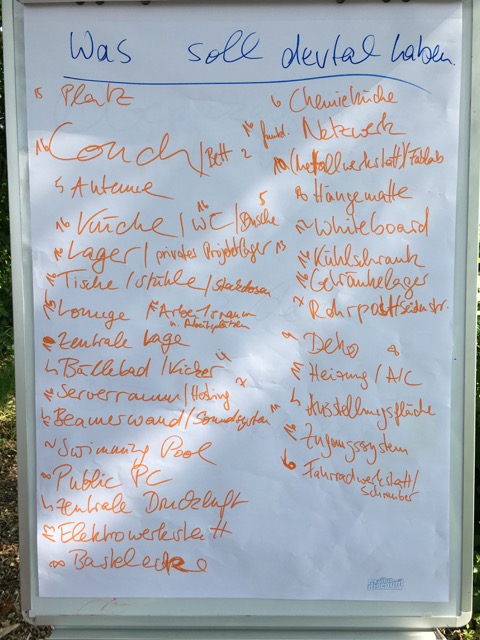 Was soll devtal haben.
15 Platz
16 Couch / Bett 2
5 Antenne
16 Küche / WC 16 / Dusche 5
Lager / privates Projektlager 13
Tische / Stühle / Steckdosen
Lounge Arbeitsraum
u. Arbeitsplätzen
Zentrale Lage
4 Bällebad / Kicker 4
Serverraum / Hosting 7
Beamerwand / Soundsystem
2 Swimming Pool
8 Public PC
4 Zentrale Druckluft
Elektrowerkstatt
8 Bastelecke
6 Chemieküche
16 Netzwerk
(Metallwerkstatt) / Fablab
8 Hängematte
12 Whiteboard
Kühlschrank
16 Getränkelager
7 Rohrpost / Seidenstr.
9 Deko 8
11 Heizung / A/C
4 Ausstellungsfläche
Zugangssystem
6 Fahrradwerkstatt /
Schrauber